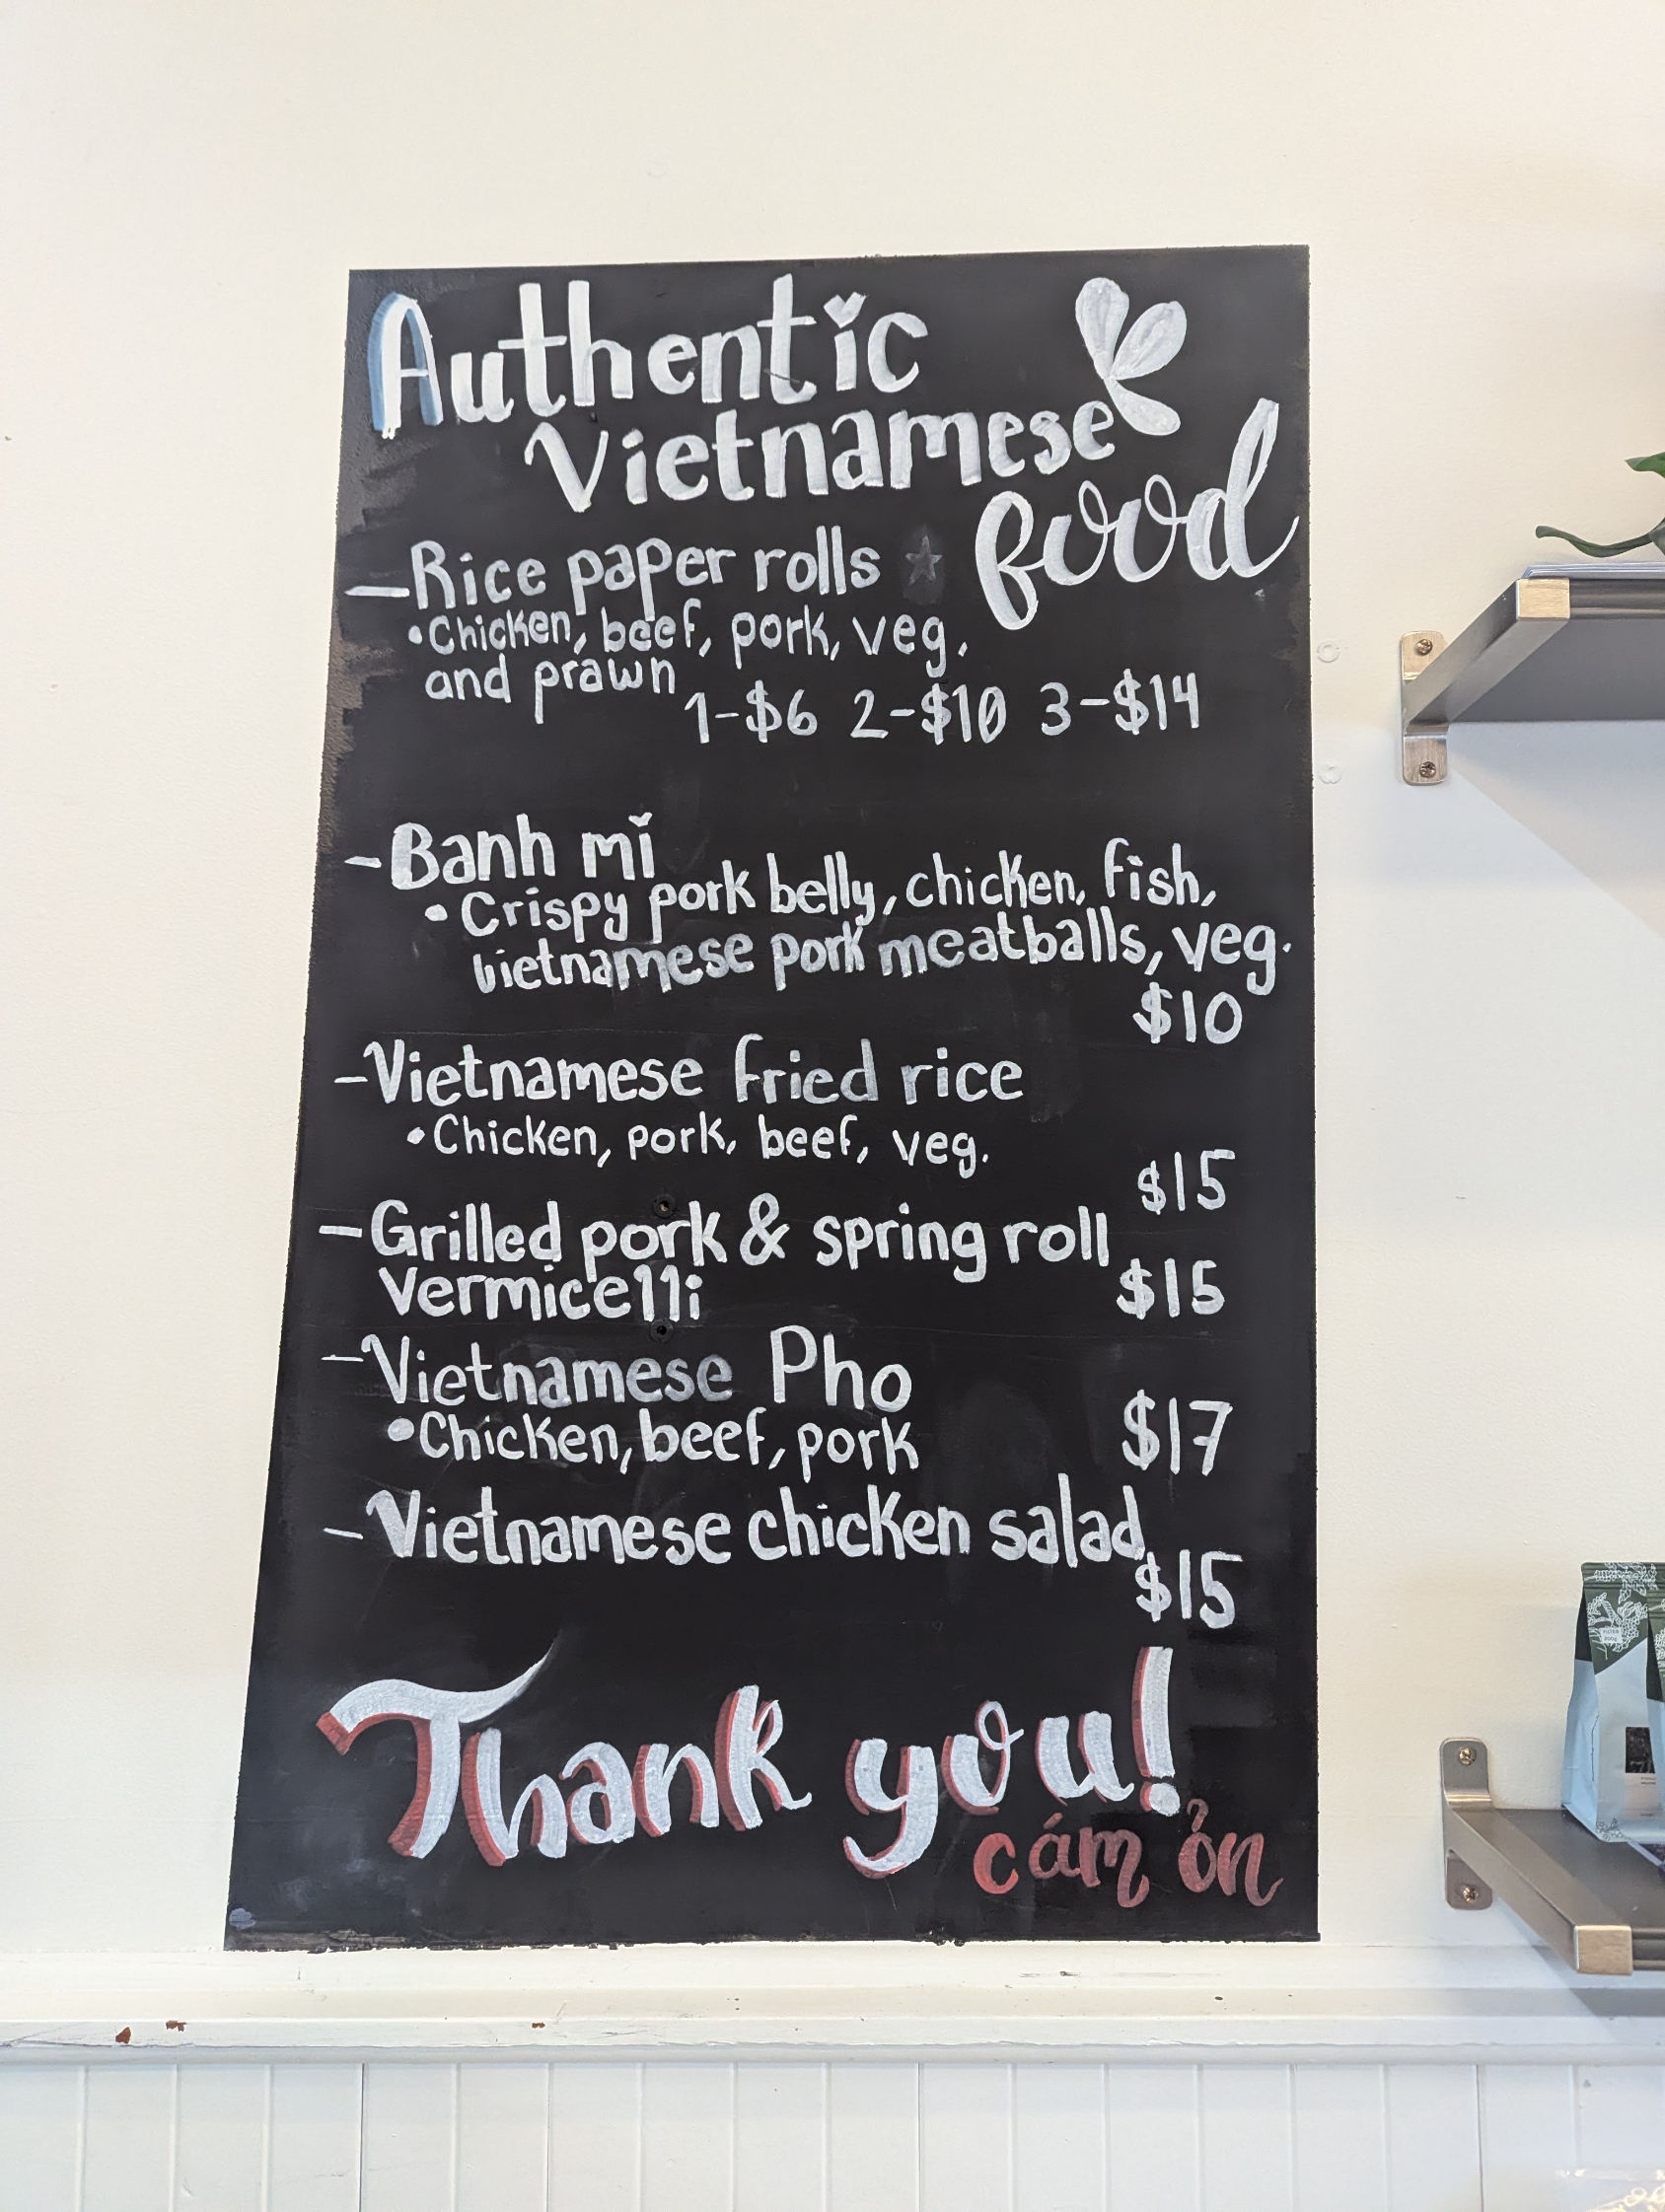 Authentic
Vietnamese
food
- Rice paper rolls
• Chicken, beef, pork, veg.
and prawn
1-$6 2-$10 3-$14
- Banh mi
• Crispy pork belly, chicken, fish,
Vietnamese pork meatballs, veg.
$10
- Vietnamese fried rice
• Chicken, pork, beef, veg.
$15
- Grilled pork & spring roll
vermicelli $15
- Vietnamese Pho
• Chicken, beef, pork $17
- Vietnamese chicken salad
$15
Thank you!
cám ỏn
FILTER